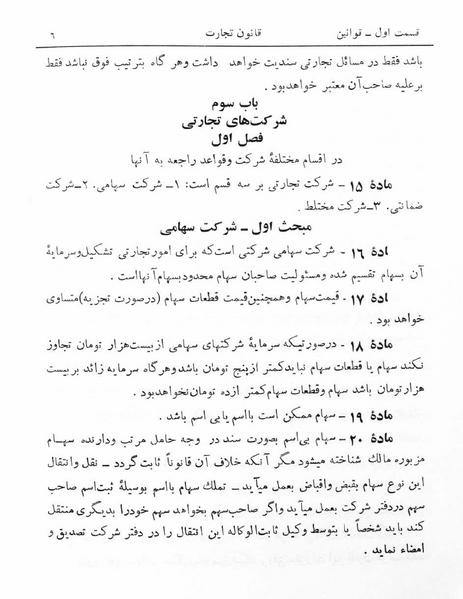 قسمت اول ـ قوانین قانون تجارت ۶
باشد فقط در مسائل تجارتی سندیت خواهد داشت وهرگاه بترتیب فوق نباشد فقط
برعلیه صاحب‌آن معتبر خواهدبود.
باب سوم
شرکت‌های تجارتی
فصل اول
در اقسام مختلفهٔ شرکت وقواعد راجعه به آنها
مادهٔ ۱۵ - شرکت تجارتی بر سه قسم است: ۱ـ شرکت سهامی. ۲ـشرکت
ضمانتی. ۳ـشرکت مختلط.
مبحث اول ـ شرکت سهامی
ادهٔ ۱۶ - شرکت سهامی شرکتی است‌که برای امورتجارتی تشکیل‌وسرمایهٔ
آن بسهام تقسیم شده ومسئولیت صاحبان سهام محدودبسهام‌آنهااست.
ادهٔ ۱۷ - قیمت‌سهام وهمچنین‌قیمت قطعات سهام (درصورت تجزیه)متساوی
خواهد بود.
مادهٔ ۱۸ - درصورتیکه سرمایهٔ شرکتهای سهامی ازبیست‌هزار تومان تجاوز
نکند سهام یا قطعات سهام نبایدکمتر ازپنج تومان باشدوهرگاه سرمایه زائد بربیست
هزارتومان باشد سهام وقطعات سهام‌کمتر ازده تومان‌نخواهدبود.
مادهٔ ۱۹ - سهام ممکن است بااسم‌یابی اسم باشد.
مادهٔ ۲۰ - سهام بی‌اسم بصورت سند در وجه حامل مرتب ودارنده سهام
مزبوره مالک شناخته میشود مگر آنکه خلاف آن قانوناً ثابت‌گردد ـ نقل وانتقال
این نوع سهام بقبض‌واقباض بعمل میآید ـ تملك سهام بااسم بوسیلهٔ ثبت‌اسم صاحب
سهم دردفتر شرکت بعمل میآید واگر صاحب‌سهم بخواهد سهم خودرا بدیگری‌منتقل
کند باید شخصاً یا بتوسط وکیل ثابت‌الوکاله این انتقال را در دفتر شرکت تصدیق و
امضاء نماید.